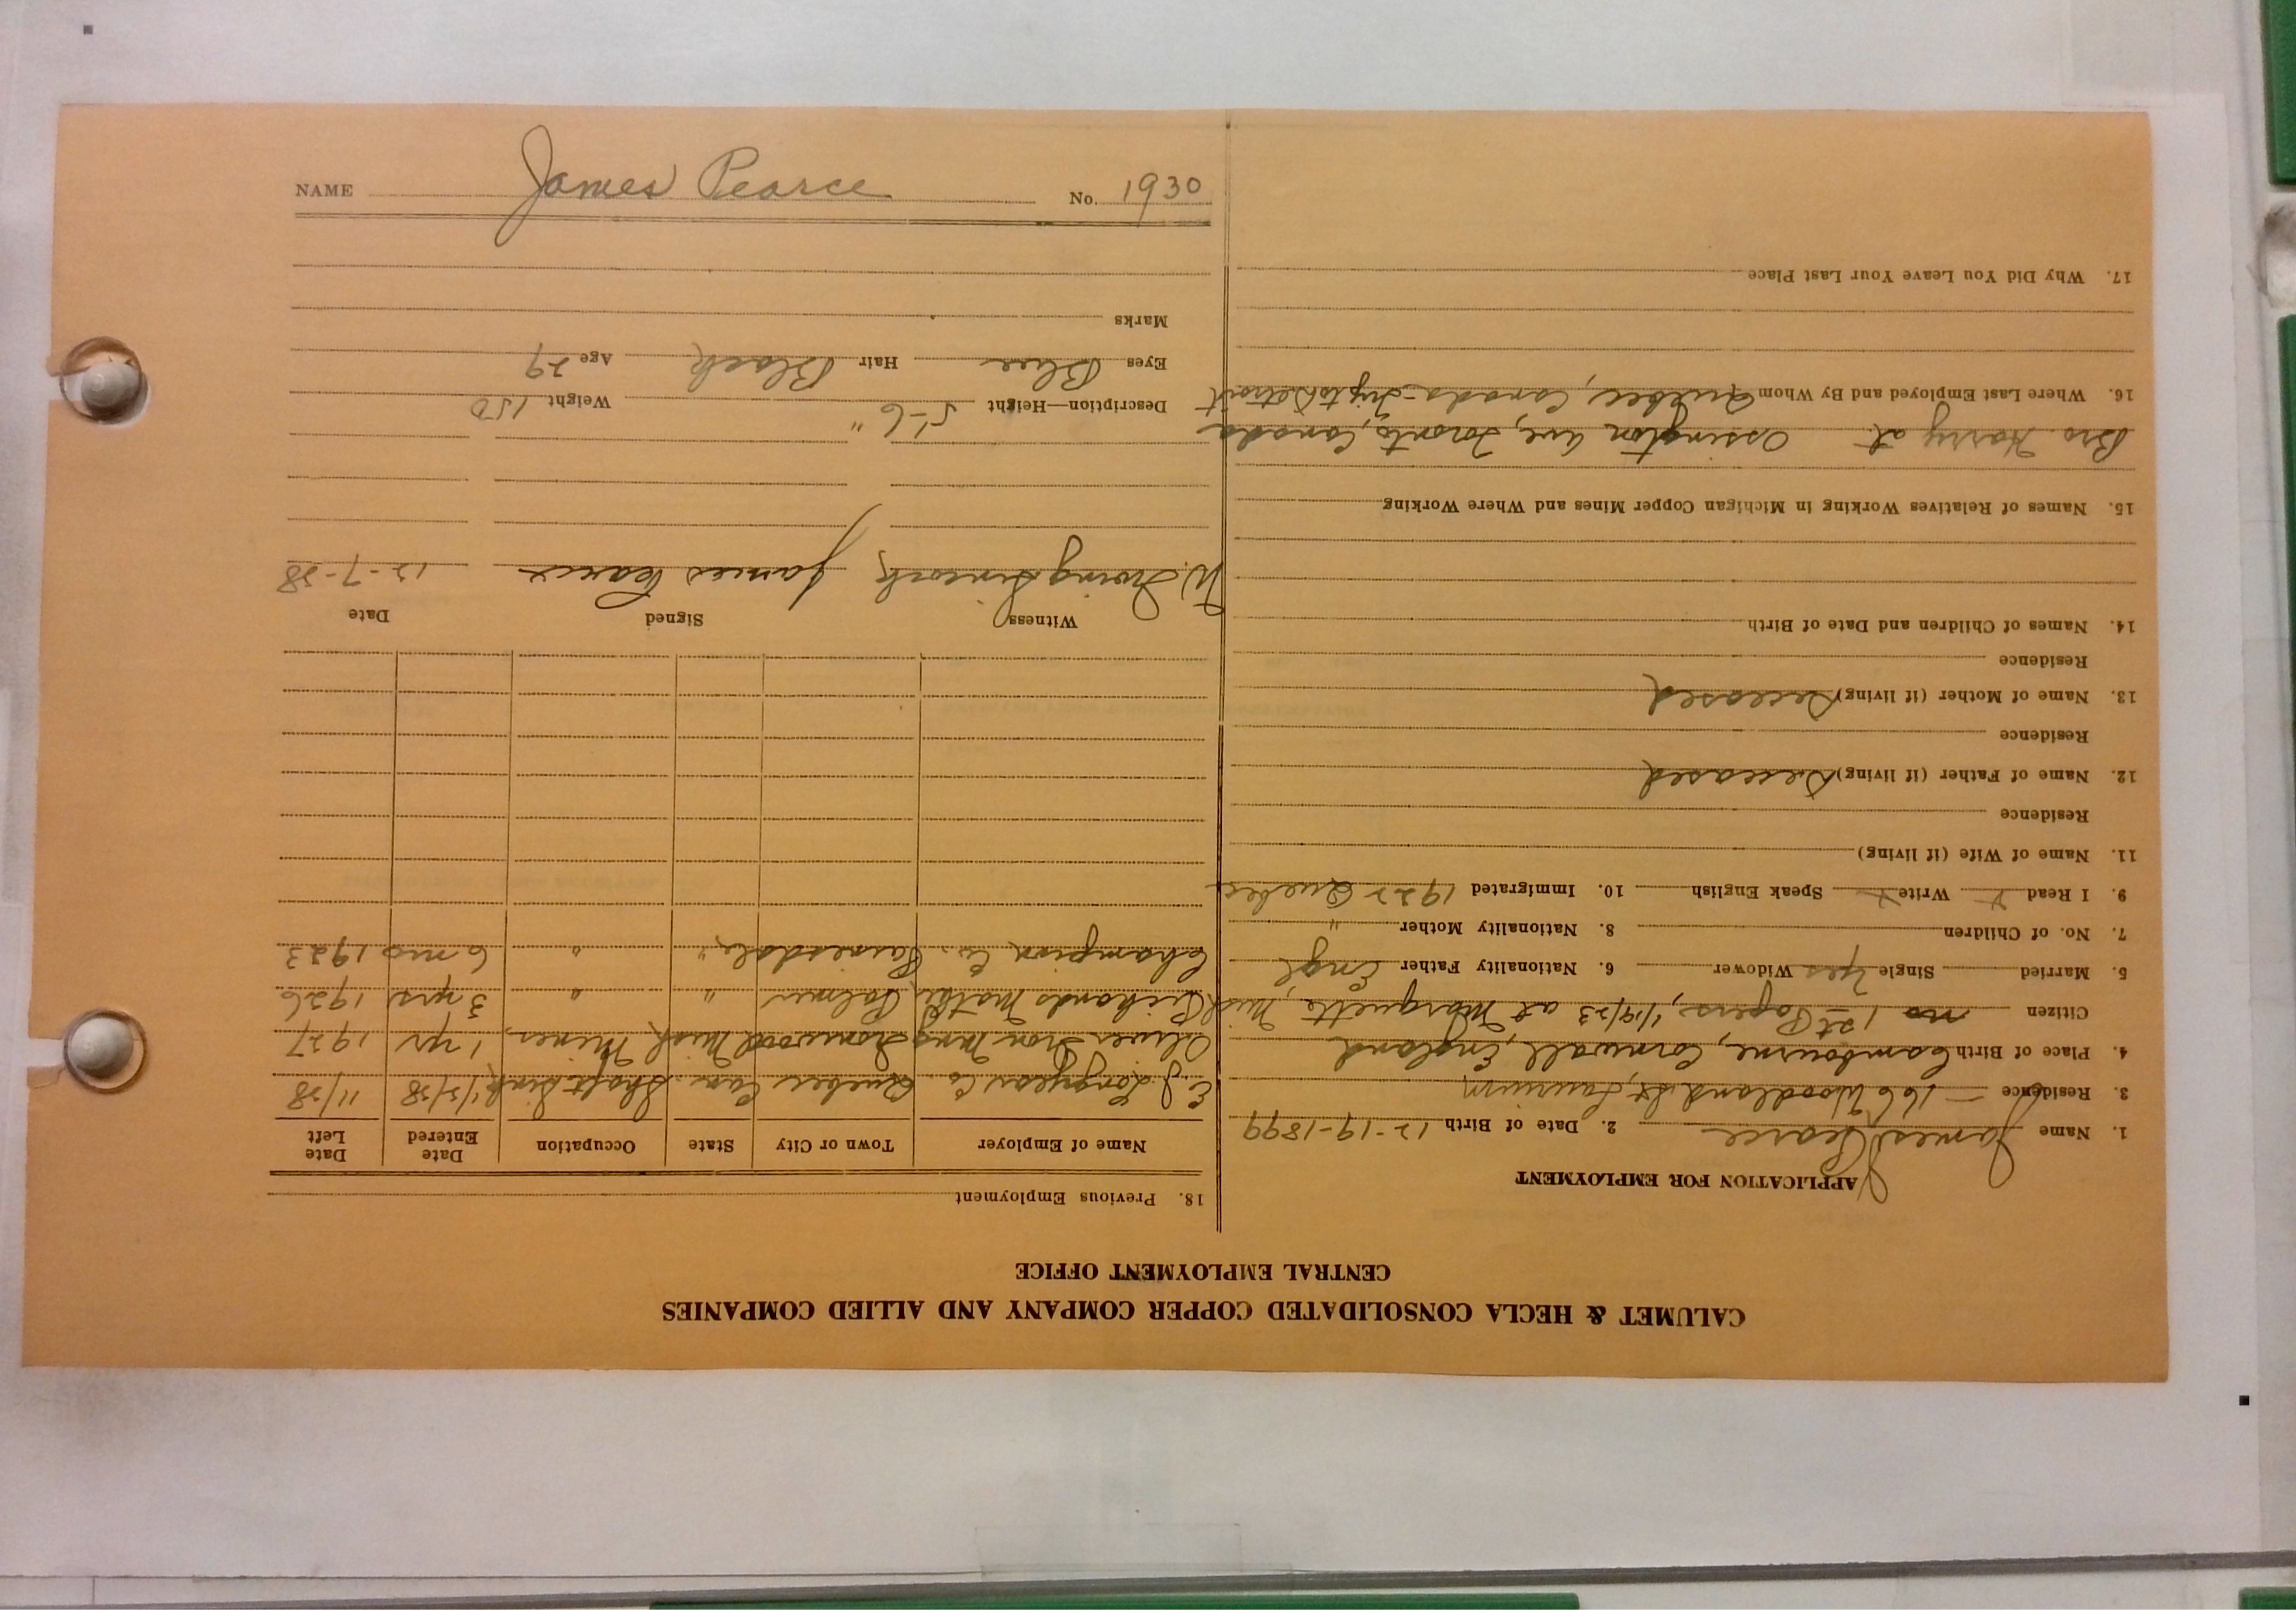 NAME James Pearce No. 1930
CALUMET & HECLA CONSOLIDATED COPPER COMPANY AND ALLIED COMPANIES
CENTRAL EMPLOYMENT OFFICE
APPLICATION FOR EMPLOYMENT
1. Name James Pearce 2. Date of Birth 12-19-1899
3. Residence - 166 Woodland St. Laurium
4. Place of Birth Cambourne, Cornwall, England
Citizen no 1st Papers, 1/19/23 at Marquette Mich
5. Married Single Yes Widower 6. Nationality Father Engl
7. No. of Children 8. Nationality Mother "
9. I Read Y Write Y Speak English 10. Immigrated 1922 Quebec
11. Name of Wife (if living)
Residence
12. Name of Father (if living) Deceased
Residence
13. Name of Mother (if living) Deceased
Residence
14. Names of Children and Date of Birth
15. Names of Relatives Working in Michigan Copper Mines and Where Working
Bro. Harry at Ossington Ave, Toronto, Canada
16. Where Last Employed and By Whom Quebec, Canada - Trip to Detroit
17. Why Did You Leave Your Last Place
18. Previous Employment
Name of Employer Town or City State Occupation Date Entered Date Left
E. J. Longyear Co Quebec Can. Shaft Sink 11/28
Oliver Iron Mng Ironwood Mich Miner 1 yr 1927
Richards Mather Palmer " " 3 yrs 1926
Champion Co. Painesdale " " 6 mo 1923
Witness Signed Date
W. Irving James Pearce 12-7-28
Description—Height 5'-6" Weight 150
Eyes Blue Hair Black Age 29
Marks